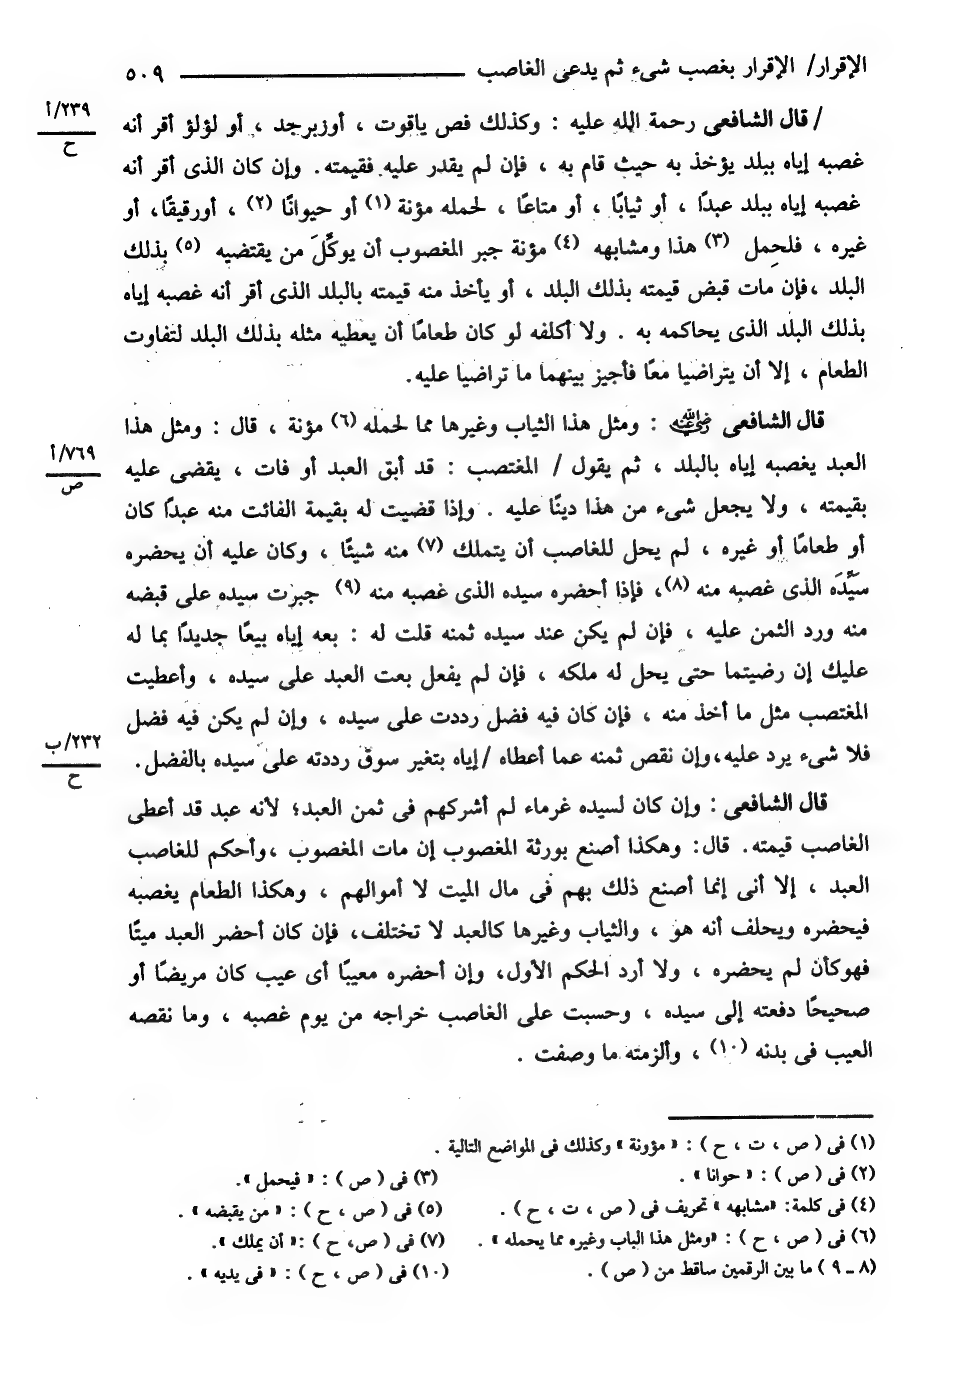 الإقرار/ الإقرار بغصب شىء ثم يدعى الغاصب ـــــــــــ ٥٠٩
٢٣٩/أ
ح
/ قال الشافعى رحمة الله عليه : وكذلك فص ياقوت ، أوزبرجد ، أو لؤلؤ أقر أنه
غصبه إياه ببلد يؤخذ به حيث قام به ، فإن لم يقدر عليه فقيمته . وإن كان الذى أقر أنه
غصبه إياه ببلد عبدًا ، أو ثيابًا ، أو متاعًا ، لحمله مؤنة (١) أو حيوانًا (٢) ، أورقيقًا، أو
غيره ، فلحمل (٣) هذا ومشابهه (٤) مؤنة جبر المغصوب أن يوكَّلَ من يقتضيه (٥) بذلك
البلد ،فإن مات قبض قيمته بذلك البلد ، أو يأخذ منه قيمته بالبلد الذى أقر أنه غصبه إياه
بذلك البلد الذى يحاكمه به . ولا أكلفه لو كان طعامًا أن يعطيه مثله بذلك البلد لتفاوت
الطعام ، إلا أن يتراضيا معًا فأجيز بينهما ما تراضيا عليه.
قال الشافعى رضي الله عنه : ومثل هذا الثياب وغيرها مما لحمله (٦) مؤنة ، قال : ومثل هذا
٧٦٩/أ
ص
العبد يغصبه إياه بالبلد ، ثم يقول / المغتصب : قد أبق العبد أو فات ، يقضى عليه
بقيمته ، ولا يجعل شىء من هذا دينًا عليه . وإذا قضيت له بقيمة الفائت منه عبدًا كان
أو طعامًا أو غيره ، لم يحل للغاصب أن يتملك (٧) منه شيئًا ، وكان عليه أن يحضره
سيِّدَه الذى غصبه منه (٨)، فإذا أحضره سيده الذى غصبه منه (٩) جبرت سيده على قبضه
منه ورد الثمن عليه ، فإن لم يكن عند سيده ثمنه قلت له : بعه إياه بيعًا جديدًا بما له
عليك إن رضيتما حتى يحل له ملكه ، فإن لم يفعل بعت العبد على سيده ، وأعطيت
المغتصب مثل ما أخذ منه ، فإن كان فيه فضل رددت على سيده ، وإن لم يكن فيه فضل
٢٣٢/ب
ح
فلا شىء يرد عليه،وإن نقص ثمنه عما أعطاه /إياه بتغير سوق رددته على سيده بالفضل.
قال الشافعى : وإن كان لسيده غرماء لم أشركهم فى ثمن العبد؛ لأنه عبد قد أعطى
الغاصب قيمته. قال: وهكذا أصنع بورثة المغصوب إن مات المغصوب ،وأحكم للغاصب
العبد ، إلا أنى إنما أصنع ذلك بهم فى مال الميت لا أموالهم ، وهكذا الطعام يغصبه
فيحضره ويحلف أنه هو ، والثياب وغيرها كالعبد لا تختلف، فإن كان أحضر العبد ميتًا
فهوكأن لم يحضره ، ولا أرد الحكم الأول، وإن أحضره معيبًا أى عيب كان مريضًا أو
صحيحًا دفعته إلى سيده ، وحسبت على الغاصب خراجه من يوم غصبه ، وما نقصه
العيب فى بدنه (١٠) ، وألزمته ما وصفت .
(١) فى ( ص ، ت ، ح ) : « مؤونة » وكذلك فى المواضع التالية .
(٢) فى ( ص ) : « حوانا » . (٣) فى ( ص ) : « فيحمل ».
(٤) فى كلمة: «مشابهه » تحريف فى ( ص ، ت ، ح ) . (٥) فى ( ص ، ح ) : « من يقبضه » .
(٦) فى ( ص ، ح ) : «ومثل هذا الباب وغيره مما يحمله » . (٧) فى ( ص، ح ) :« أن يملك ».
(٨ ـ ٩ ) ما بين الرقمين ساقط من ( ص ) . (١٠) فى ( ص ، ح ) : « فى يديه » .